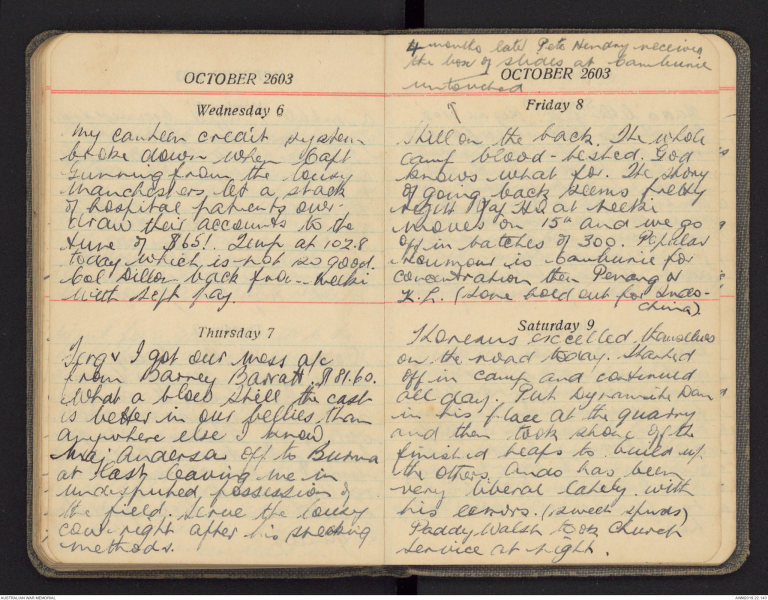 OCTOBER 2603
Wednesday 6
My canteen credit system
broke down when Capt
Gunning from the lousy
Manchesters, let a stack
of hospital patients over-
draw their accounts to the
tune of $65! Temp at 102.8
today which is not so good.
Col Dillon back from
with Sept pay.
Thursday 7
Ferg & I got our mess a/c
from Barney Barratt, $81.60.
What a blow still the cash
is better in our bellies than
anywhere else I know
Maj. Anderson off to Burma
at last leaving me in
undisputed possession of
the field. Serve the lousy
cow right after his
methods.
4 months later Pete Hendry receives
the box of slides at Camburie
untouched
OCTOBER 2603
Friday 8
Still on the back. The whole
camp blood-tested. God
knows what for. The story
of going back seems pretty
right Maj Hq at
moves on 15th and we go
off in batches of 300. Popular
rumour is Camburie for
concentration then Penang or
K.L. (Some hold out for Indo-
china).
Saturday 9
Koreans excelled themselves
on the road today. Started
off in camp and continued
all day. Put Dynamite Dan
in his place at the quarry
and then took stone off the
finished heaps to build up
the others. Ando has been
very liberal lately with
his (sweet spuds)
Paddy Walsh took Church
service at night.
AUSTRALIAN WAR MEMORIAL